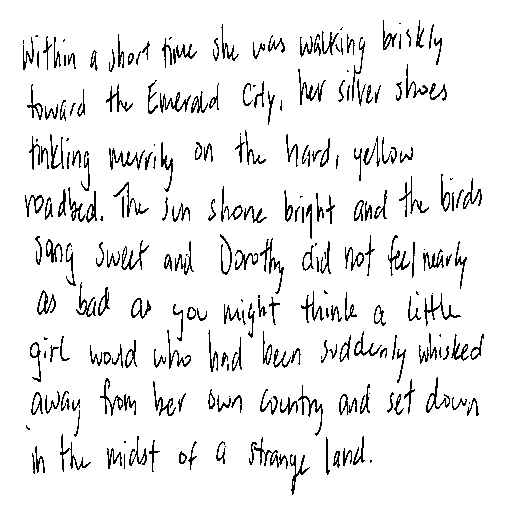 Within a short time she was walking briskly
toward the Emerald City, her silver shoes
tinkling merrily on the hard, yellow
roadbed. The sun shone bright and the birds
sang sweet and Dorothy did not feel nearly
as bad as you might think a little
girl would who had been suddenly whisked
away from her own country and set down
in the midst of a strange land.